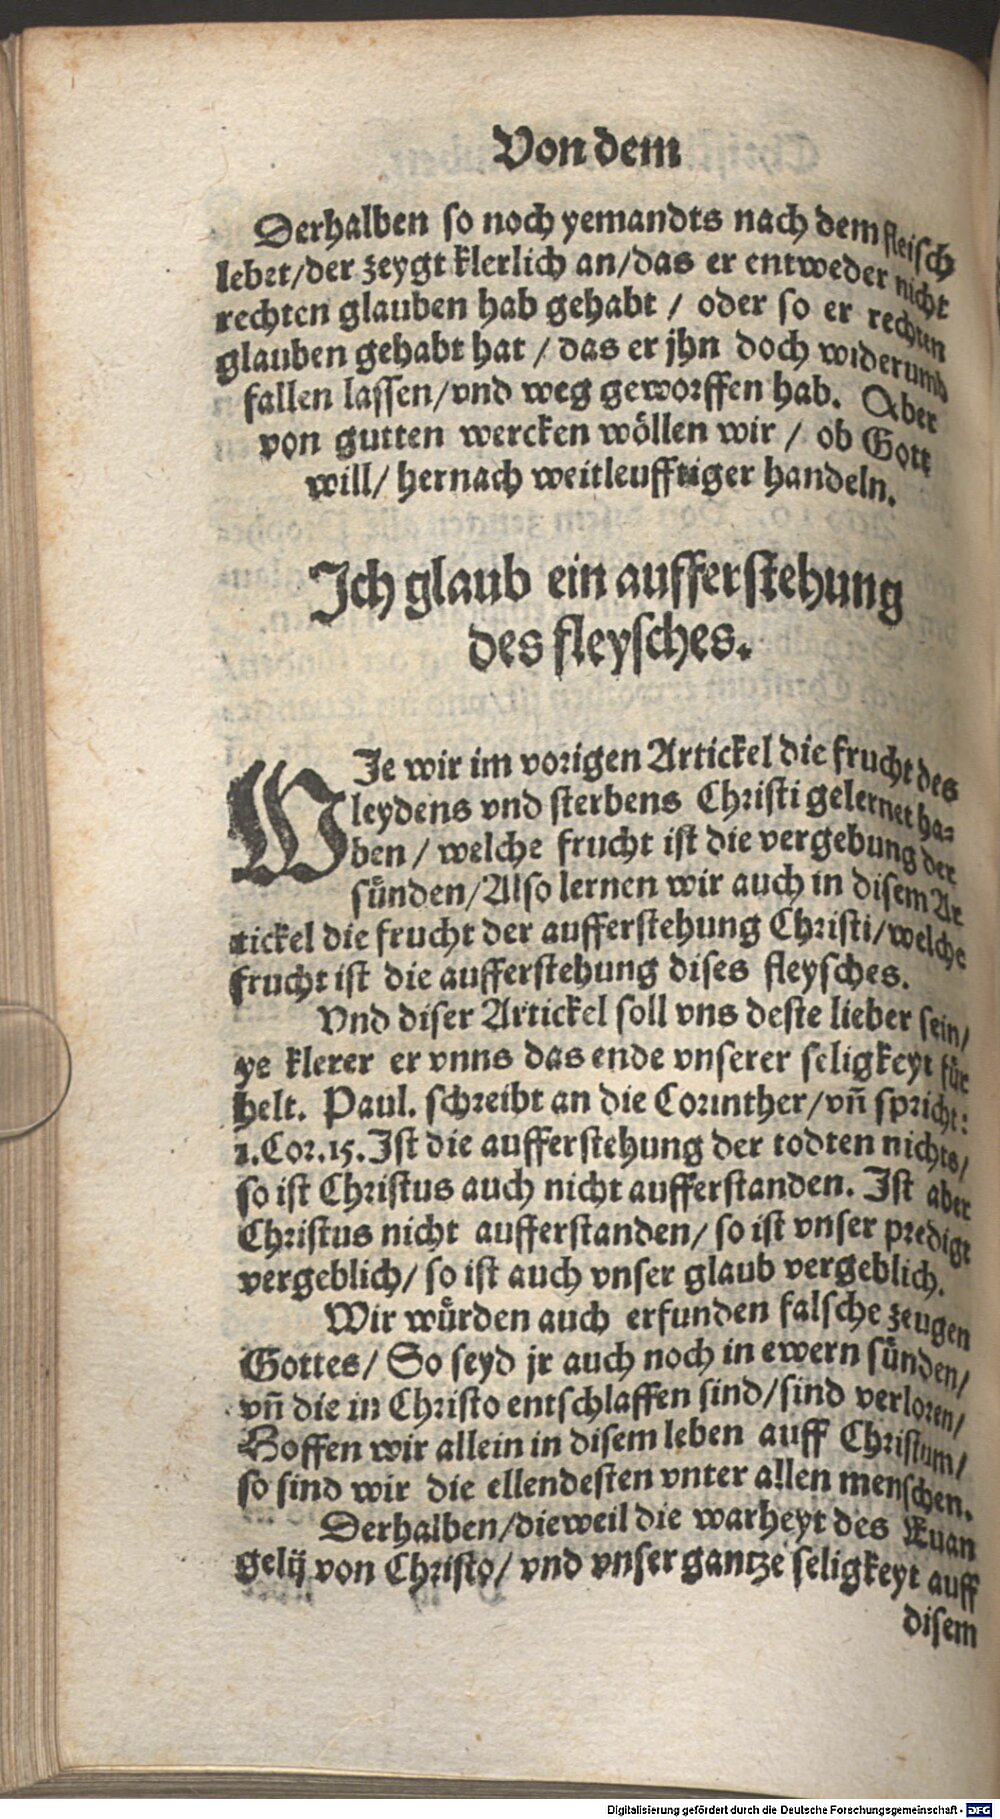 Von dem
Derhalben so noch yemandts nach dem fleisch
lebet/der zeygt klerlich an/das er entweder nicht
rechten glauben hab gehabt / oder so er rechten
glauben gehabt hat / das er jhn doch widerumb
fallen lassen/vnd weg geworffen hab. Aber
von gutten wercken wöllen wir / ob Gott
will/ hernach weitleufftiger handeln.
Ich glaub ein aufferstehung
des fleysches.
WJe wir im vorigen Artickel die frucht des
leydens vnd sterbens Christi gelernet ha-
ben / welche frucht ist die vergebung der
sünden/Also lernen wir auch in disem Ar
tickel die frucht der aufferstehung Christi/welche
frucht ist die aufferstehung dises fleysches.
Vnd diser Artickel soll vns deste lieber sein/
ye klerer er vnns das ende vnserer seligkeyt für
helt. Paul. schreibt an die Corinther/vn̄ spricht:
1.Cor.15. Ist die aufferstehung der todten nichts/
so ist Christus auch nicht aufferstanden. Ist aber
Christus nicht aufferstanden/ so ist vnser predigt
vergeblich/ so ist auch vnser glaub vergeblich.
Wir würden auch erfunden falsche zeugen
Gottes/ So seyd jr auch noch in ewern sünden/
vn̄ die in Christo entschlaffen sind/sind verloren/
Hoffen wir allein in disem leben auff Christum/
so sind wir die ellendesten vnter allen menschen.
Derhalben/dieweil die warheyt des Euan
gelij von Christo/ vnd vnser gantze seligkeyt auff
disem
Digitalisierung gefördert durch die Deutsche Forschungsgemeinschaft - DFG